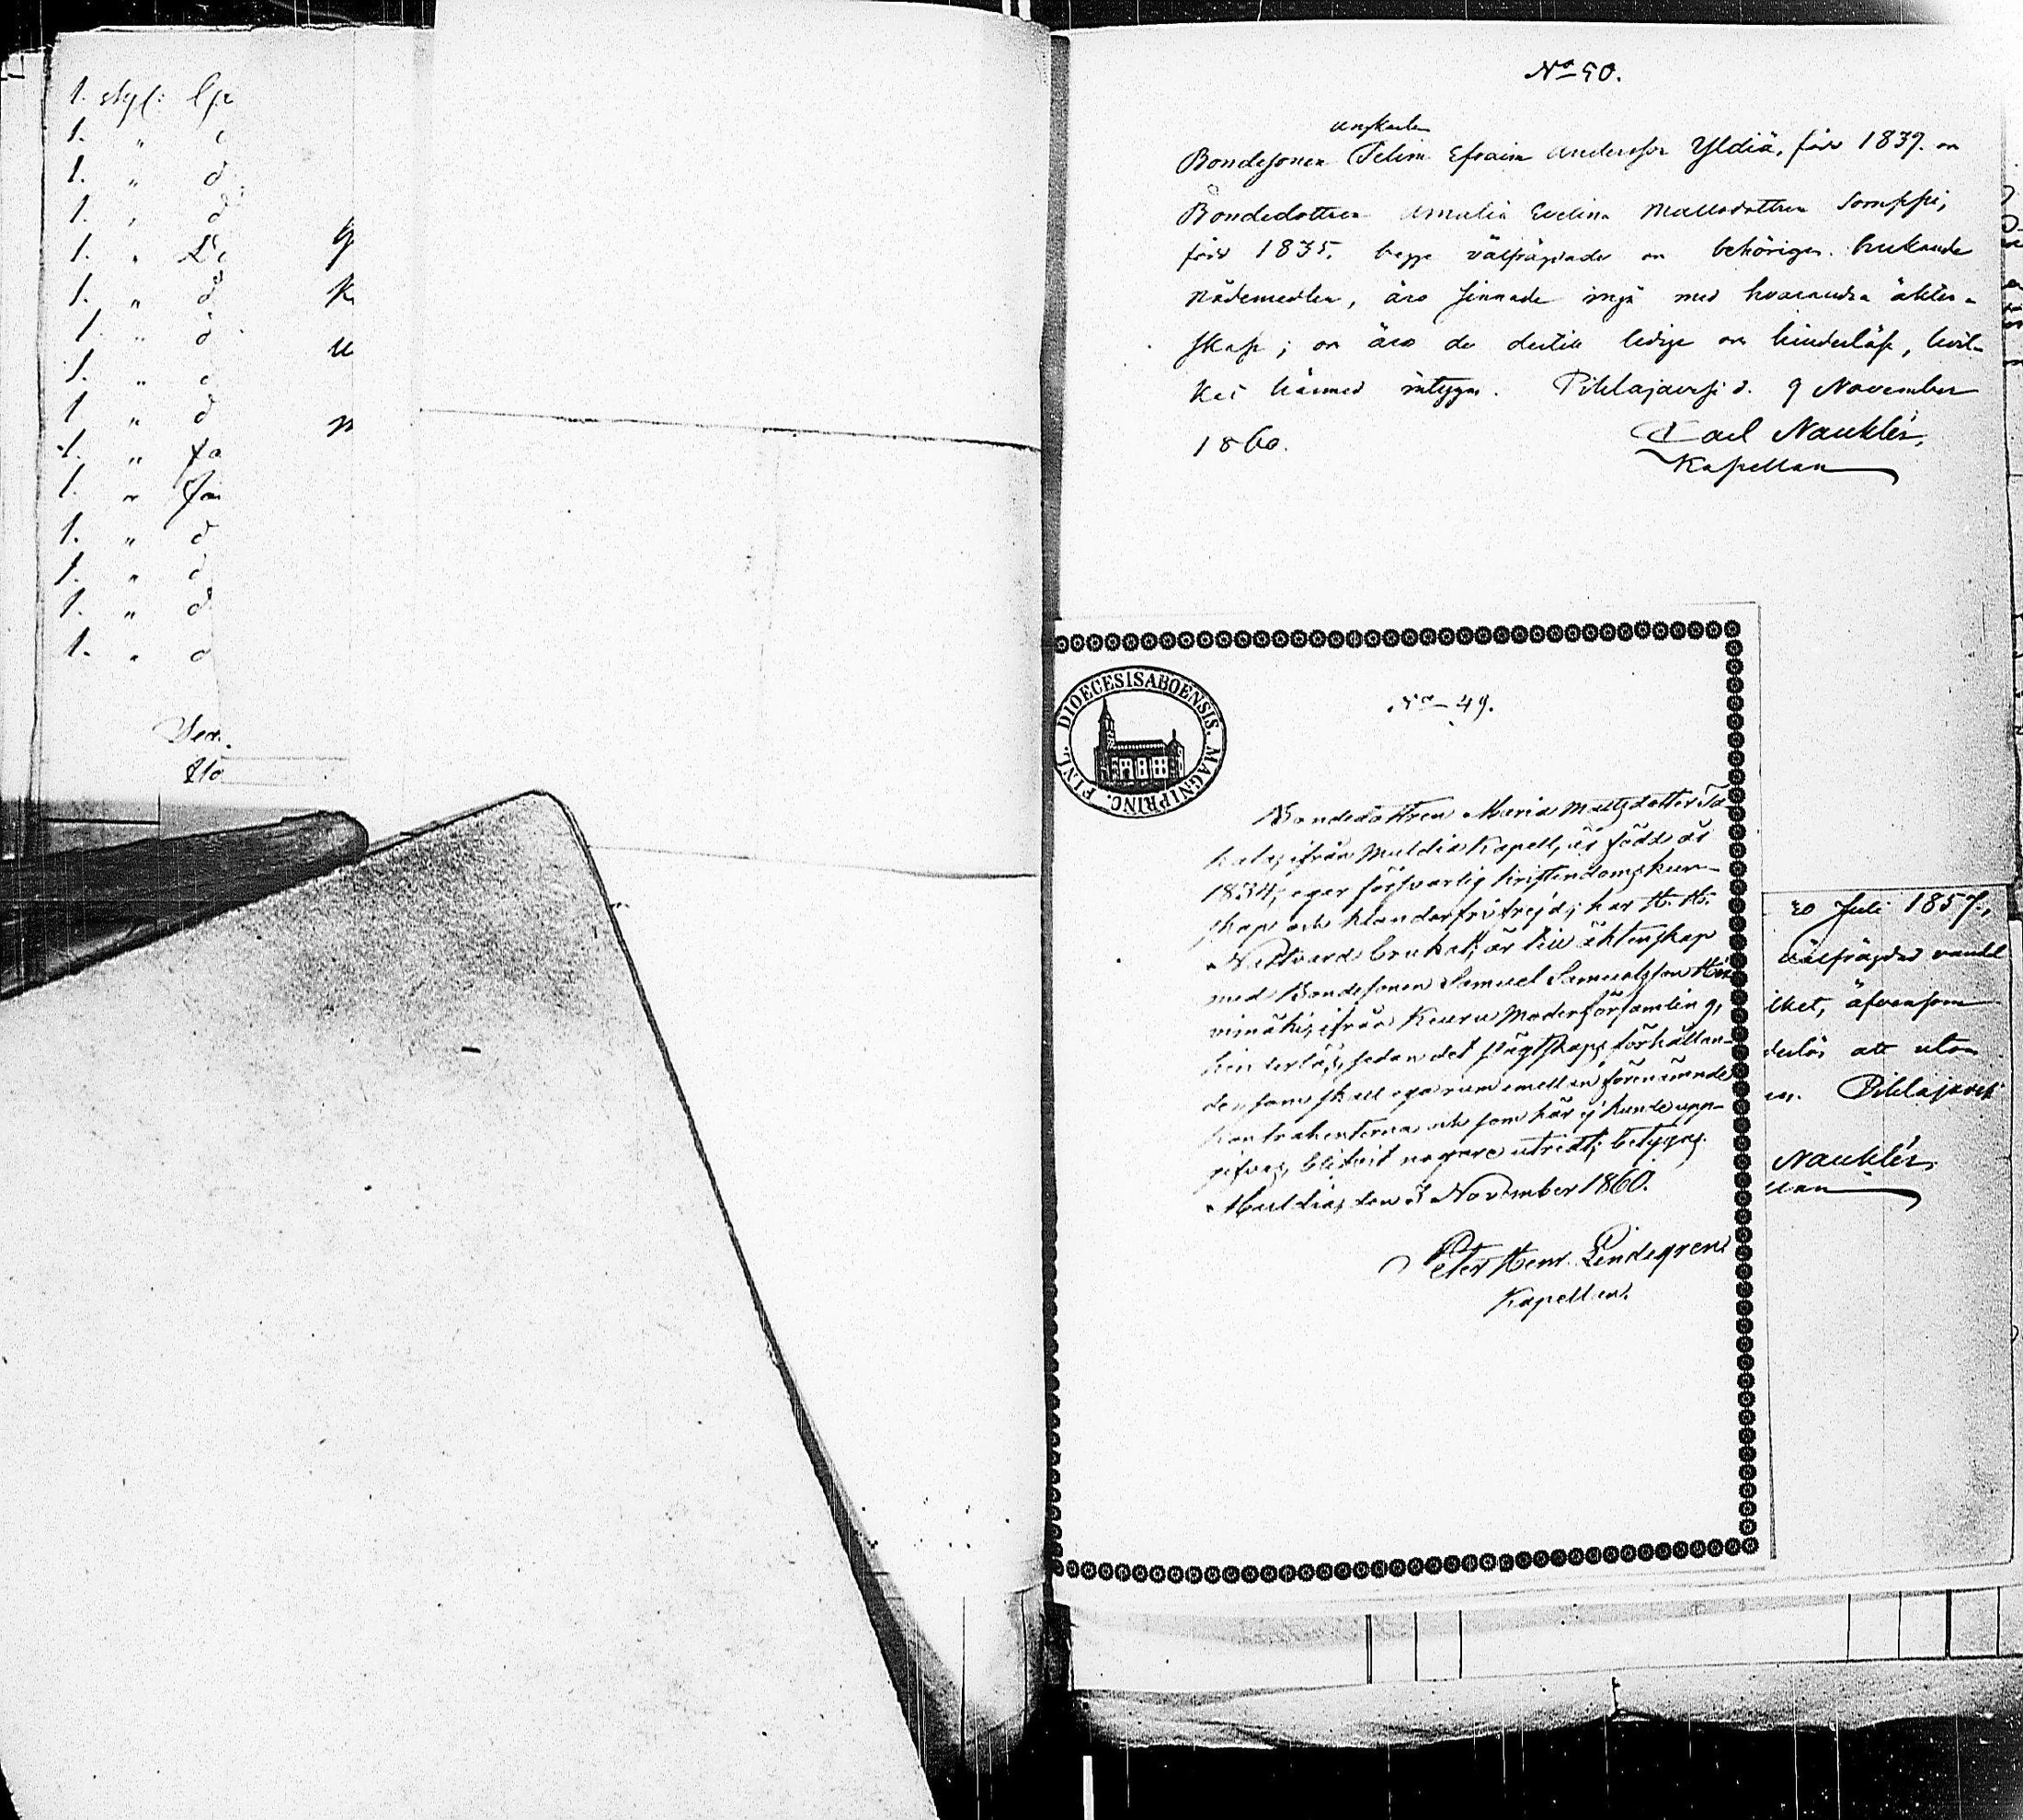 1. styf:
1. "
1. "
1. "
1. "
1. "
1. "
1. "
1. "
1. "
1. "
1. "
1. "
1. "
1. "
No 50.
ungkarlen
Bondesonen Felim Efraim Andersson Yldiä, född 1839. och
Bondedottren Amalia Evelina Mattsdotter Somppi,
född 1835. begge välfrägdade och behörigen brukande
nådemedlen, äro sinnade ingå med hvarandra äkten-
skap; och äro de dertill ledige och hinderlöse, hvil-
ket härmed intygas. Pihlajavesi d. 9 November
1860.
Carl Nauklér,
Kapellan
DIOECESIS ABOENSIS. MAGNI PRINC. FINL.
No 49.
Bondedottren Maria Mattsdotter
ifrån Muldia Kapell, är född år
1834; eger försvarlig kristendomskun-
skap och klanderfri frejd; har H. H.
Nattvard brukat; är till äktenskap
med Bondesonen Samuel Samuelsson
ifrån Keuru Moderförsamling,
hinderlös, sedan det slägtskaps förhållan-
de, som skall ega rum emellan förenämnde
Kontrahenterna och som här ej kunde upp-
gifvas, blifvit nogare utredt; betygas.
Muldia, den 3 November 1860.
Peter Henr. Lindegren
Kapellan.
20 Juli 1857,
välfrägdad vandel
ilket, äfvensom
derlös att utom
Pihlajavesi
Nauklér,
llan